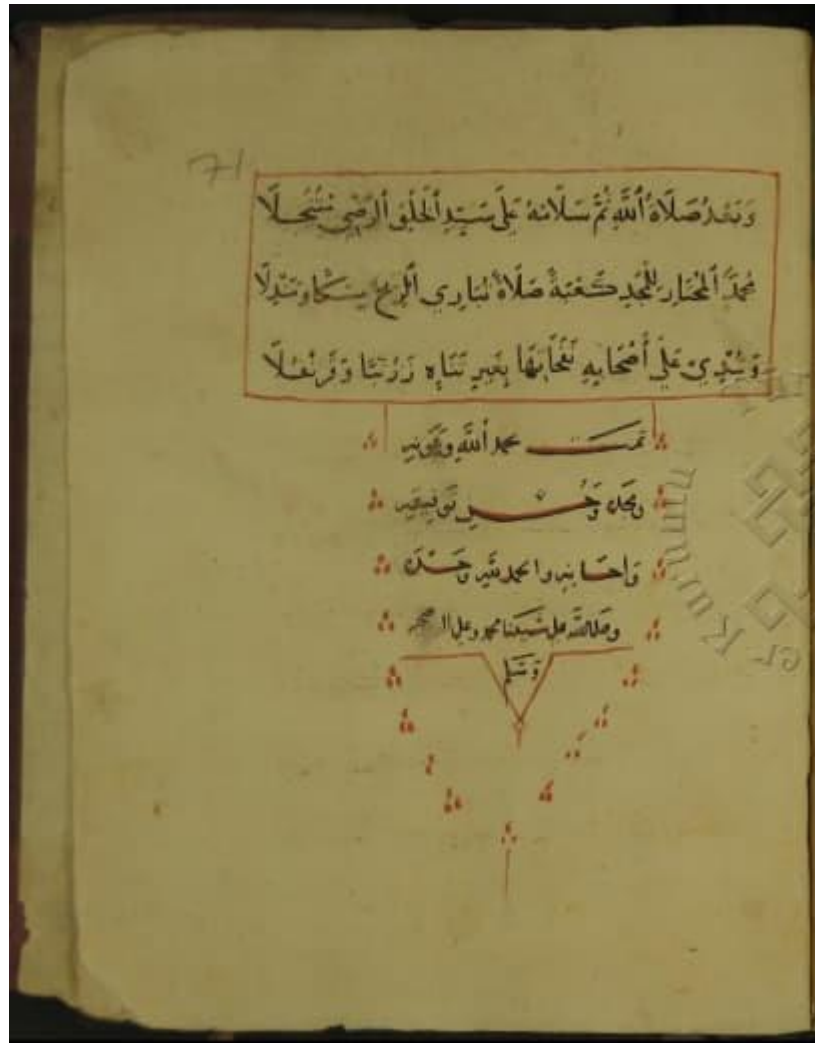 71
وَبَعْدُ صَلَاةُ ٱللَّهِ ثُمَّ سَلَامُهُ عَلَى سَيِّدِ ٱلْخَلْقِ ٱلرَّضِيِّ مُتَنَخِّلَا
مُحَمَّدٍ ٱلْمُخْتَارِ لِلْمَجْدِ كَعْبَةً صَلَاةً تُبَارِي ٱلرِّيحَ مِسْكًا وَمَنْدَلَا
وَتُبْدِي عَلَى أَصْحَابِهِ نَفَحَاتِهَا بِغَيْرِ تَنَاهٍ زَرْنَبًا وَقَرَنْفُلَا
تمت بحمد ٱللَّه وعونه
وحسن توفيقه
والحمد لله وحده
وصلى الله على سيدنا محمد وعلى
وسلم